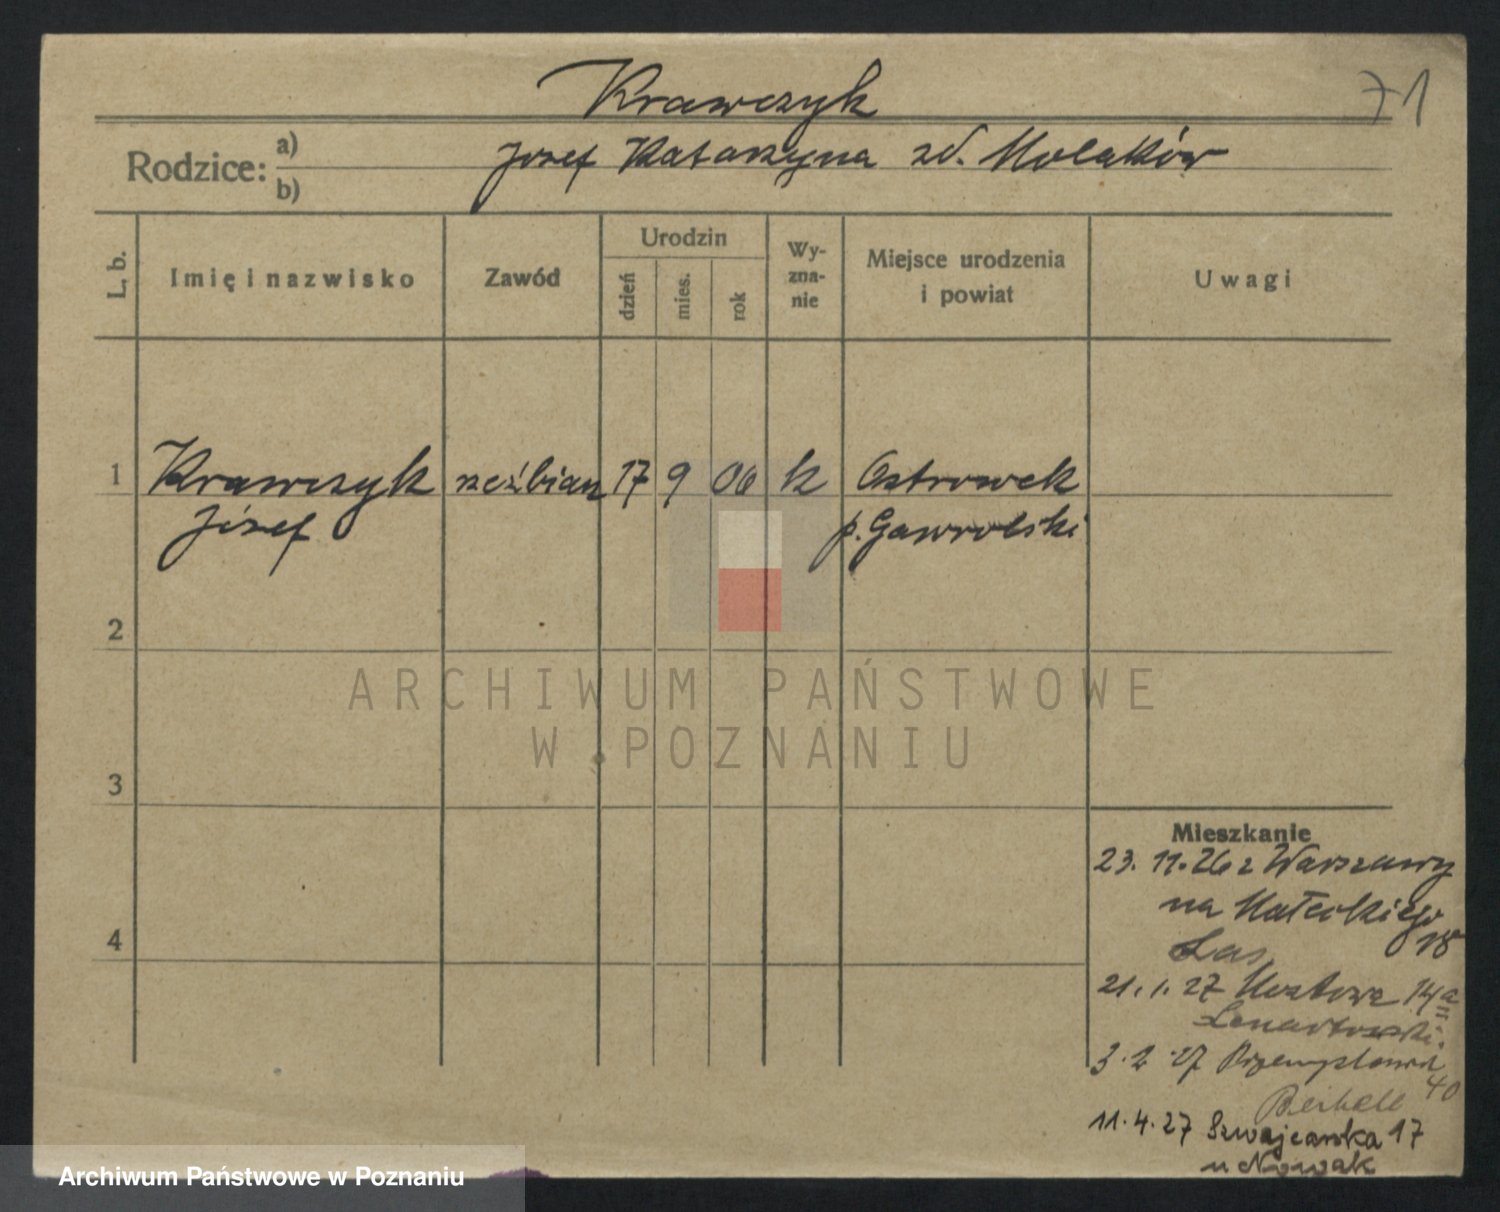 71
Krawczyk
Rodzice: a)
Józef Katarzyna zd. Molaków
b)
L. b.
Imię i nazwisko
Zawód
Urodzin
dzień
mies.
rok
Wy-
zna-
nie
Miejsce urodzenia
i powiat
Uwagi
1 Krawczyk rzeźbiarz 17 9 06 k Ostrowek
Józef p. Gawrolski
2
3
4
Mieszkanie
23. 11. 26 z Warszawy
na Małeckiego
18
Las
21. 1. 27 Mostowa 14a
Lenartowski
3. 2. 27 Przemysłowa
40
11. 4. 27 Szwajcarska 17
u Nowak
ARCHIWUM PAŃSTWOWE
W POZNANIU
Archiwum Państwowe w Poznaniu